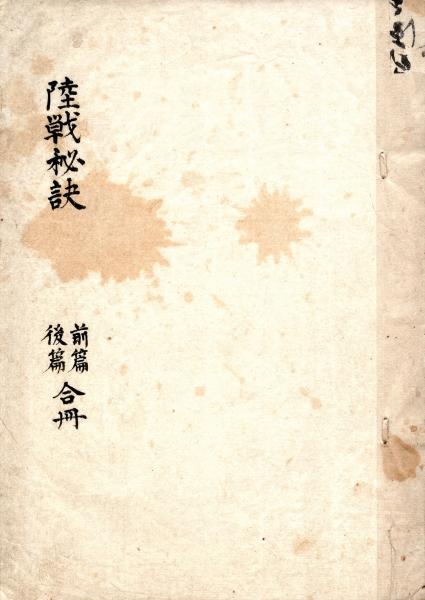 陸戦秘訣
前篇
後篇
合冊